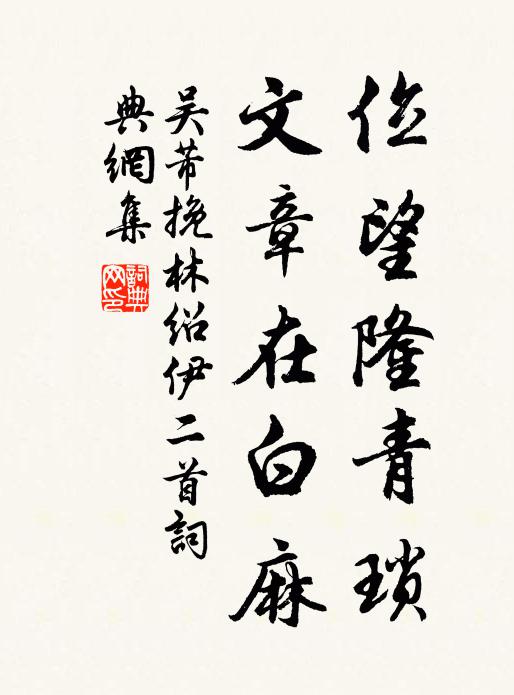 位望隆青瑣
文章在白麻
吴芾挽林紹伊二首詞
典網集
詞典
网印